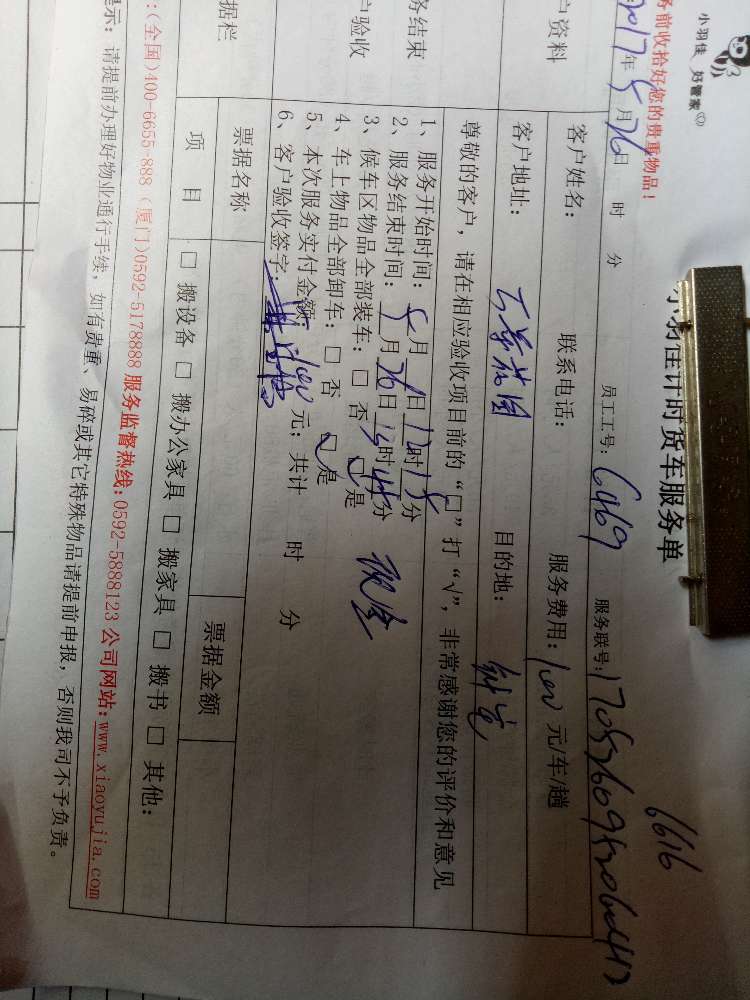 小羽佳 好管家
小羽佳计时货车服务单
6616
务前收拾好您的贵重物品！
2017年5月26日 时 分
员工工号：6469
服务联号：
户资料
客户姓名：
联系电话：
服务费用：100 元/车/趟
客户地址：
目的地：
尊敬的客户，请在相应验收项目前的“口”打“√”，非常感谢您的评价和意见
务结束
户验收
1、服务开始时间：5月 日12时15分
2、服务结束时间：5月26日15时45分
3、候车区物品全部装车：□ 否 □是
4、车上物品全部卸车：□ 否 □是
现金
5、本次服务实付金额：100元；共计 时 分
6、客户验收签字：
据栏
票据名称
票据金额
项 目
□ 搬设备 □ 搬办公家具 □ 搬家具 □ 搬书 □ 其他：
：(全国)400-6655-888（厦门)0592-5178888 服务监督热线:0592-5888123 公司网站:www.xiaoyujia.com
提示：请提前办理好物业通行手续，如有贵重、易碎或其它特殊物品请提前申报，否则我司不予负责。